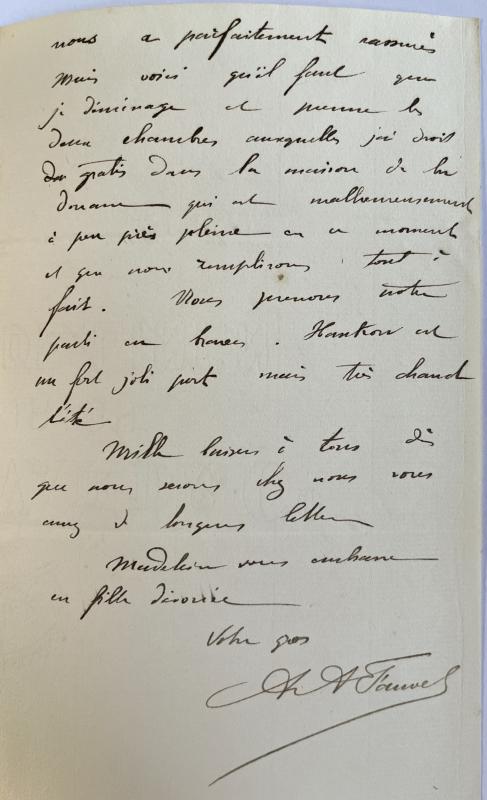 nous a parfaitement rassurés
Mais voici qu'il faut que
je déménage et prenne les
deux chambres auxquelles j'ai droit
gratis dans la maison de la
Douane qui est malheureusement
à peu près pleine en ce moment
et que nous remplirons tout à
fait. Nous prenons notre
parti en braves. Hankow est
un fort joli port mais très chaud
l'été
Mille baisers à tous dès
que nous serons chez nous vous
aurez de longues lettres
Madeleine vous embrasse
en fille dévouée
Votre gas
A A Fauvel